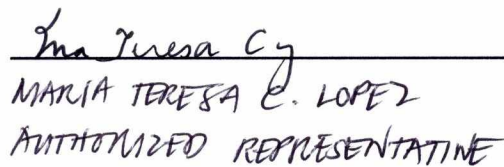 Ma Teresa C
MARIA TERESA C. LOPEZ
AUTHORIZED REPRESENTATIVE